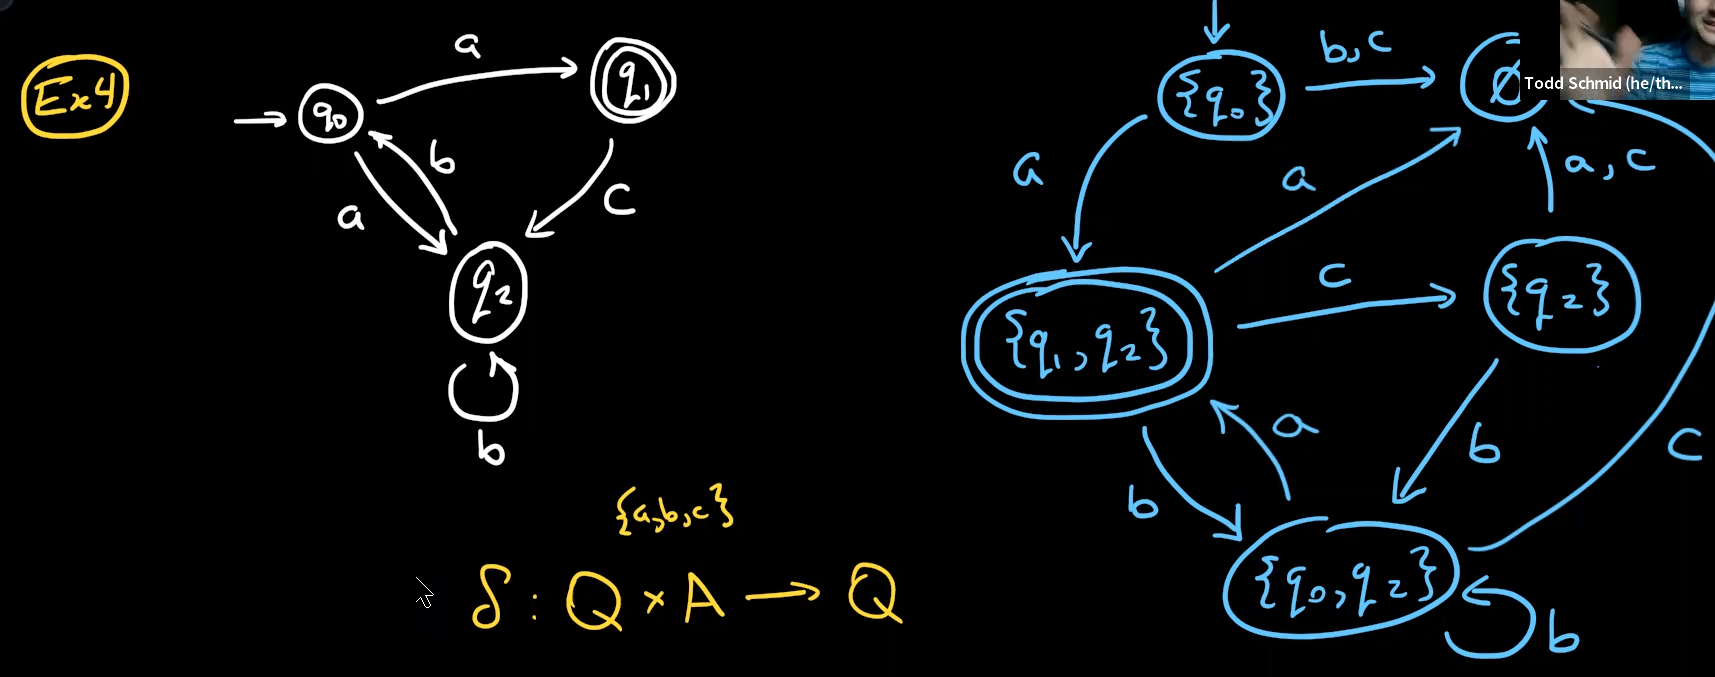 Ex 4
a
q₀
q₁
b
a
c
q₂
b
{a,b,c}
δ : Q × A → Q
{q₀}
b, c
∅
Todd Schmid (he/th...
a
a
a, c
{q₁, q₂}
c
{q₂}
a
b
b
c
{q₀, q₂}
b